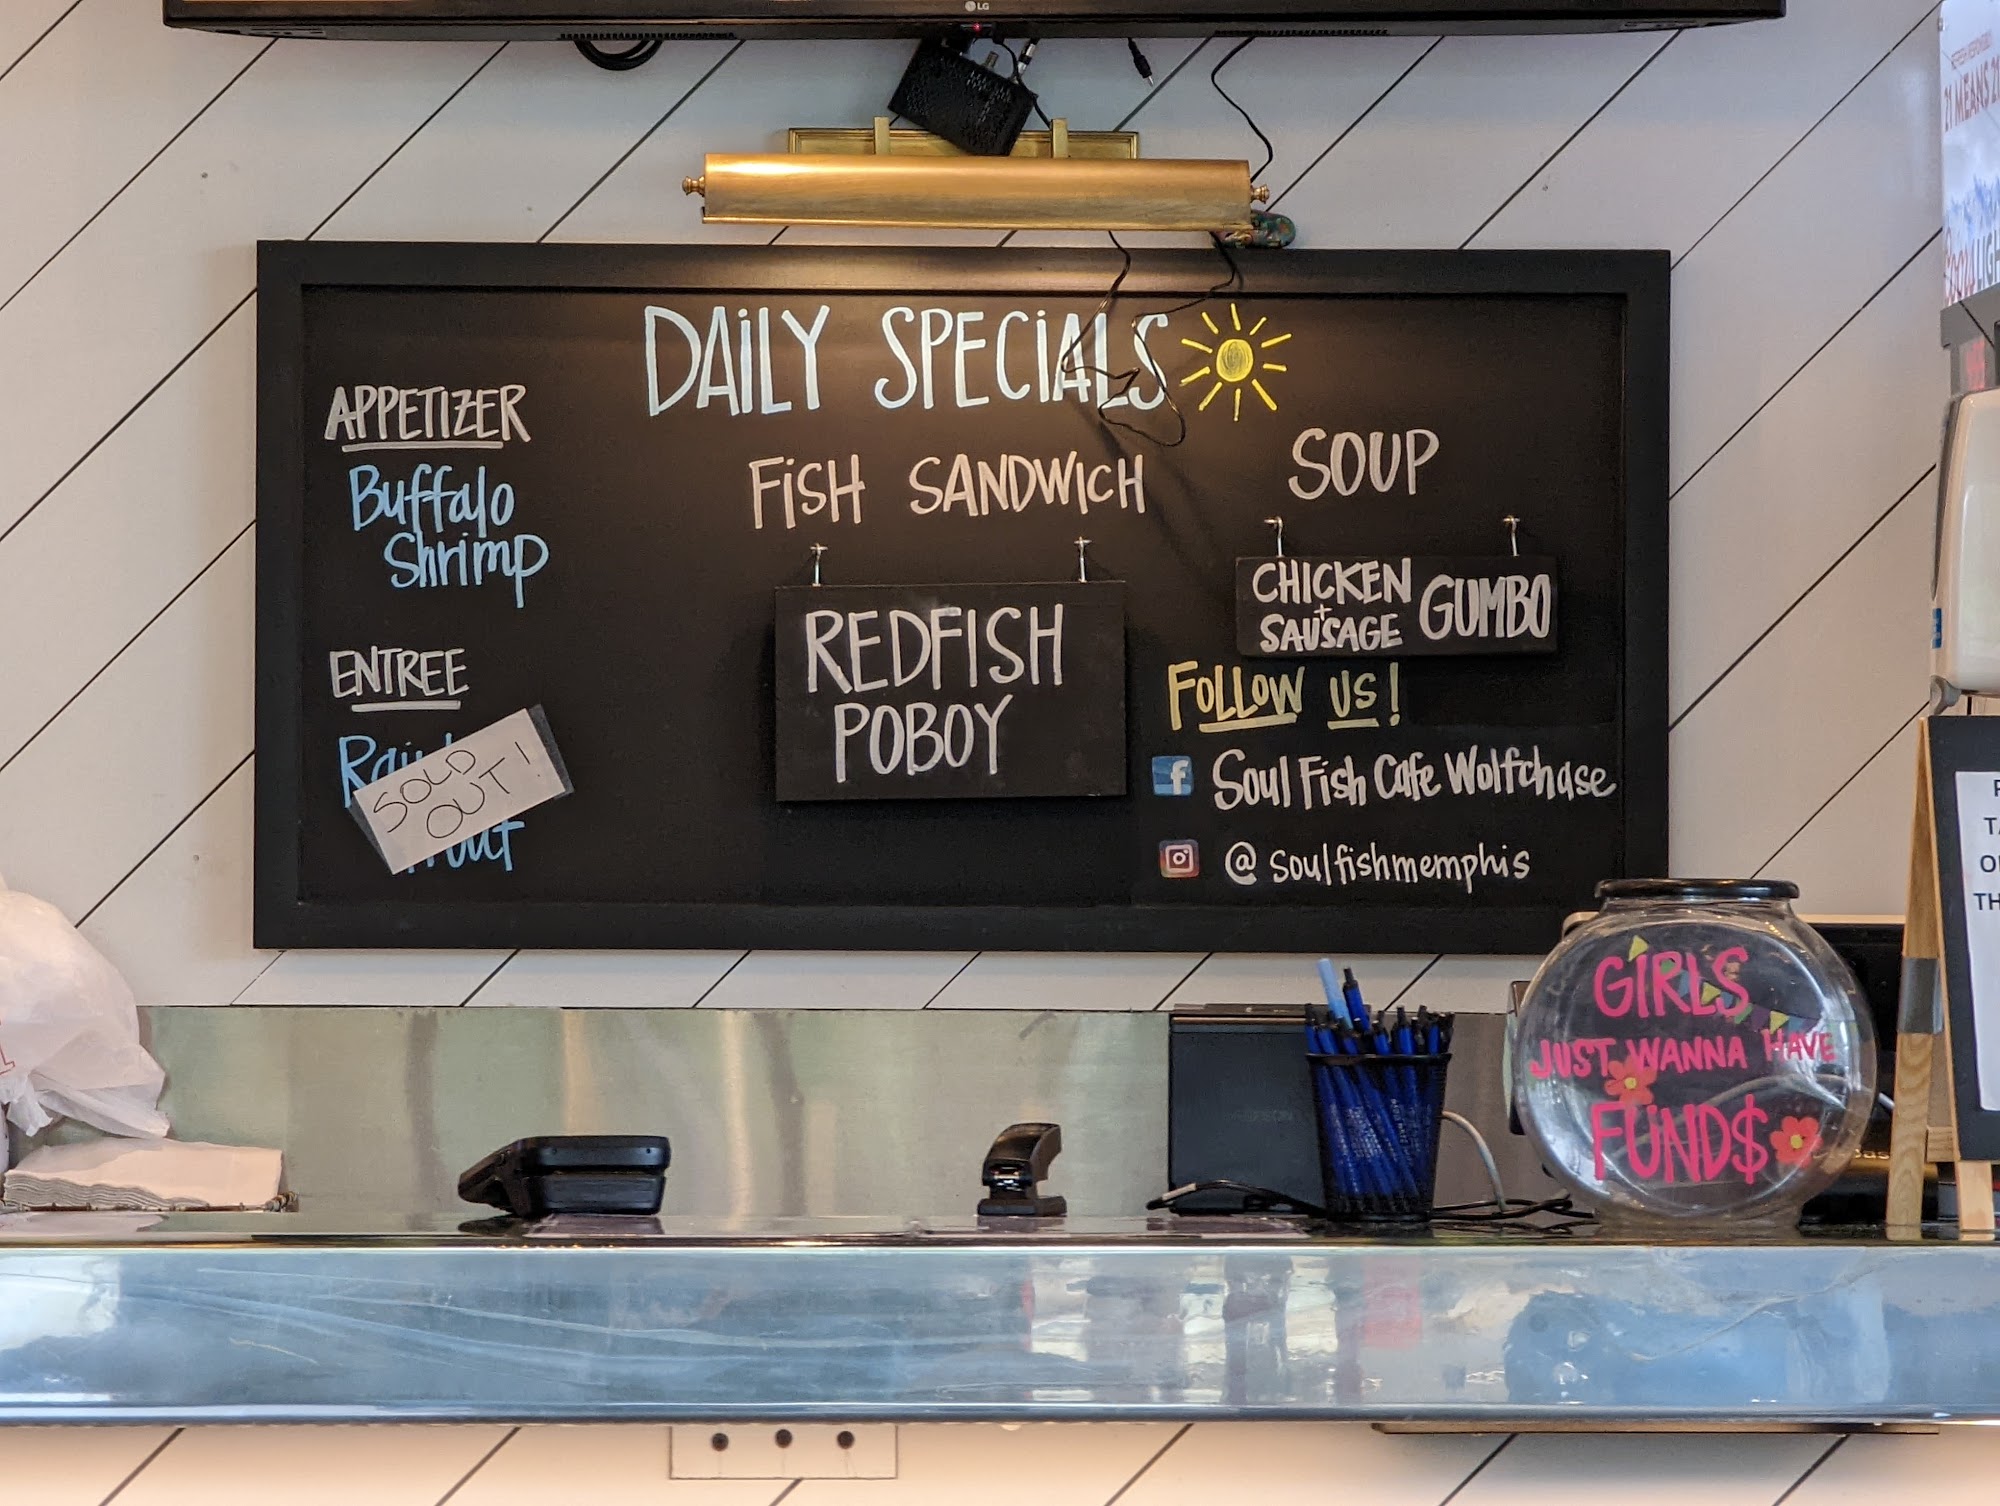 LG
DAiLY SPECiALS
APPETIZER
Buffalo
Shrimp
ENTREE
SOLD
OUT!
FiSH SANDWiCH
REDFISH
POBOY
SOUP
CHICKEN
+
SAUSAGE
GUMBO
FOLLOW US!
f Soul Fish Cafe Wolfchase
@soulfishmemphis
GiRLS
JUST WANNA HAVE
FUND$
21 MEANS 21